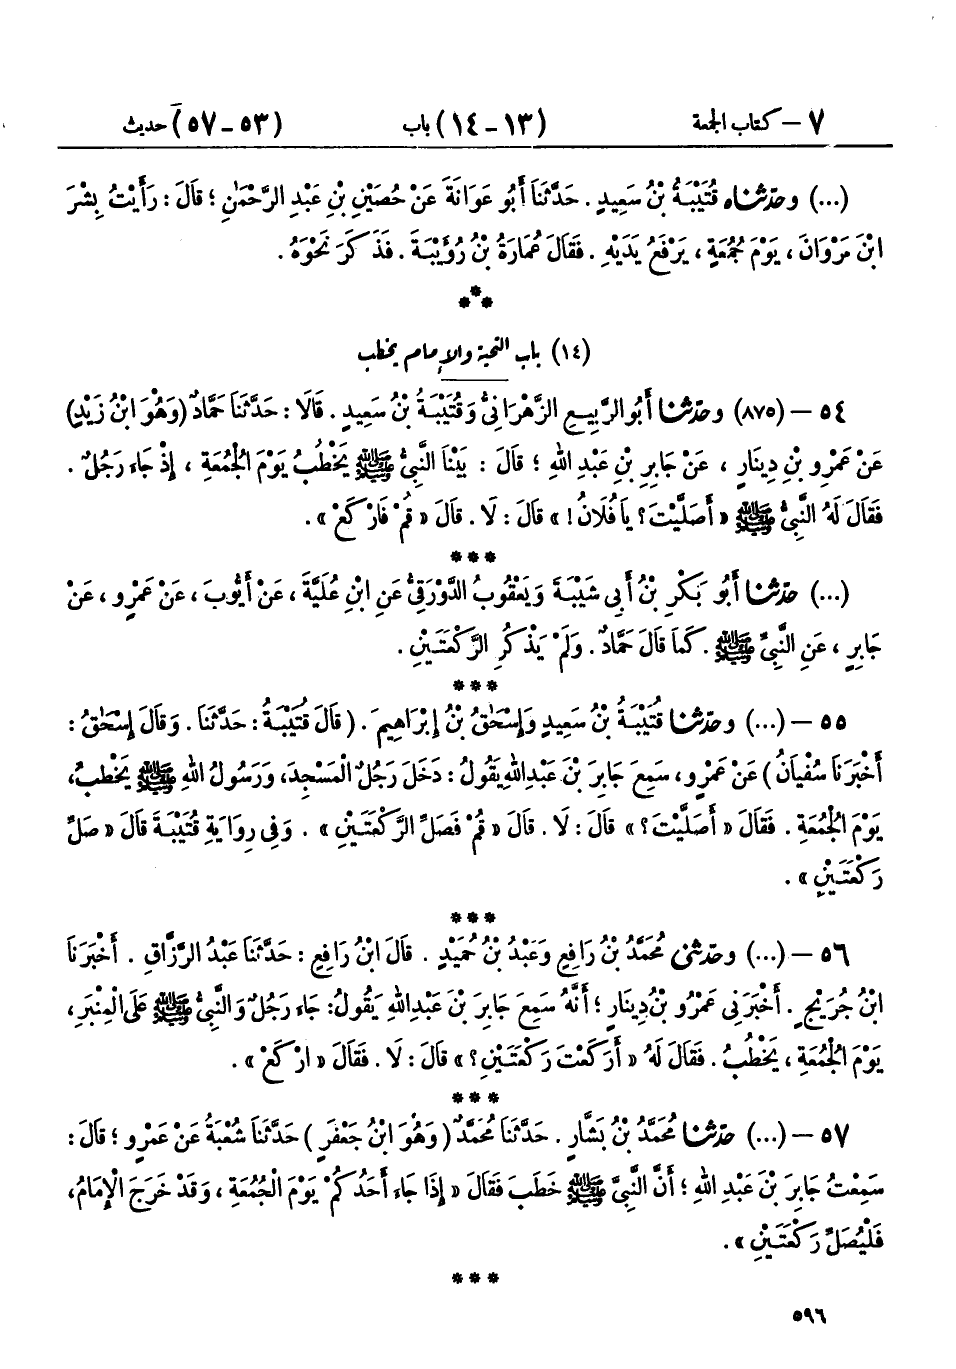 ٧ – كتاب الجمعة (١٣ – ١٤) باب (٥٣ – ٥٧) حديث
(...) وحَدَّثَنَاه قُتَيْبَةُ بْنُ سَعِيدٍ . حَدَّثَنَا أَبُو عَوَانَةَ عَنْ حُصَيْنِ بْنِ عَبْدِ الرَّحْمَٰنِ ؛ قَالَ : رَأَيْتُ بِشْرَ
ابْنَ مَرْوَانَ ، يَوْمَ جُمُعَةٍ ، يَرْفَعُ يَدَيْهِ . فَقَالَ عُمَارَةُ بْنُ رُؤَيْبَةَ . فَذَكَرَ نَحْوَهُ .
***
(١٤) باب التحية والإمام يخطب
٥٤ – (٨٧٥) وحَدَّثَنَا أَبُو الرَّبِيعِ الزَّهْرَانِيُّ وَقُتَيْبَةُ بْنُ سَعِيدٍ . قَالَا : حَدَّثَنَا حَمَّادٌ (وَهُوَ ابْنُ زَيْدٍ)
عَنْ عَمْرِو بْنِ دِينَارٍ ، عَنْ جَابِرِ بْنِ عَبْدِ اللهِ ؛ قَالَ : بَيْنَا النَّبِيُّ ﷺ يَخْطُبُ يَوْمَ الْجُمُعَةِ ، إِذْ جَاءَ رَجُلٌ .
فَقَالَ لَهُ النَّبِيُّ ﷺ « أَصَلَّيْتَ ؟ يَا فُلَانُ ! » قَالَ : لَا . قَالَ « قُمْ فَارْكَعْ » .
***
(...) حَدَّثَنَا أَبُو بَكْرِ بْنُ أَبِي شَيْبَةَ وَيَعْقُوبُ الدَّوْرَقِيُّ عَنِ ابْنِ عُلَيَّةَ ، عَنْ أَيُّوبَ ، عَنْ عَمْرٍو ، عَنْ
جَابِرٍ ، عَنِ النَّبِيِّ ﷺ . كَمَا قَالَ حَمَّادٌ . وَلَمْ يَذْكُرِ الرَّكْعَتَيْنِ .
***
٥٥ – (...) وحَدَّثَنَا قُتَيْبَةُ بْنُ سَعِيدٍ وَإِسْحَٰقُ بْنُ إِبْرَاهِيمَ . ( قَالَ قُتَيْبَةُ : حَدَّثَنَا . وَقَالَ إِسْحَٰقُ :
أَخْبَرَنَا سُفْيَانُ ) عَنْ عَمْرٍو ، سَمِعَ جَابِرَ بْنَ عَبْدِ اللهِ يَقُولُ : دَخَلَ رَجُلٌ الْمَسْجِدَ ، وَرَسُولُ اللهِ ﷺ يَخْطُبُ ،
يَوْمَ الْجُمُعَةِ . فَقَالَ « أَصَلَّيْتَ ؟ » قَالَ : لَا . قَالَ « قُمْ فَصَلِّ الرَّكْعَتَيْنِ » . وَفِي رِوَايَةِ قُتَيْبَةَ قَالَ « صَلِّ
رَكْعَتَيْنِ » .
***
٥٦ – (...) وحَدَّثَنِي مُحَمَّدُ بْنُ رَافِعٍ وَعَبْدُ بْنُ حُمَيْدٍ . قَالَ ابْنُ رَافِعٍ : حَدَّثَنَا عَبْدُ الرَّزَّاقِ . أَخْبَرَنَا
ابْنُ جُرَيْجٍ . أَخْبَرَنِي عَمْرُو بْنُ دِينَارٍ ؛ أَنَّهُ سَمِعَ جَابِرَ بْنَ عَبْدِ اللهِ يَقُولُ : جَاءَ رَجُلٌ وَالنَّبِيُّ ﷺ عَلَى الْمِنْبَرِ ،
يَوْمَ الْجُمُعَةِ ، يَخْطُبُ . فَقَالَ لَهُ « أَرَكَعْتَ رَكْعَتَيْنِ ؟ » قَالَ : لَا . فَقَالَ « ارْكَعْ » .
***
٥٧ – (...) حَدَّثَنَا مُحَمَّدُ بْنُ بَشَّارٍ . حَدَّثَنَا مُحَمَّدٌ ( وَهُوَ ابْنُ جَعْفَرٍ ) حَدَّثَنَا شُعْبَةُ عَنْ عَمْرٍو ؛ قَالَ :
سَمِعْتُ جَابِرَ بْنَ عَبْدِ اللهِ ؛ أَنَّ النَّبِيَّ ﷺ خَطَبَ فَقَالَ « إِذَا جَاءَ أَحَدُكُمْ يَوْمَ الْجُمُعَةِ ، وَقَدْ خَرَجَ الْإِمَامُ ،
فَلْيُصَلِّ رَكْعَتَيْنِ » .
***
٥٩٦